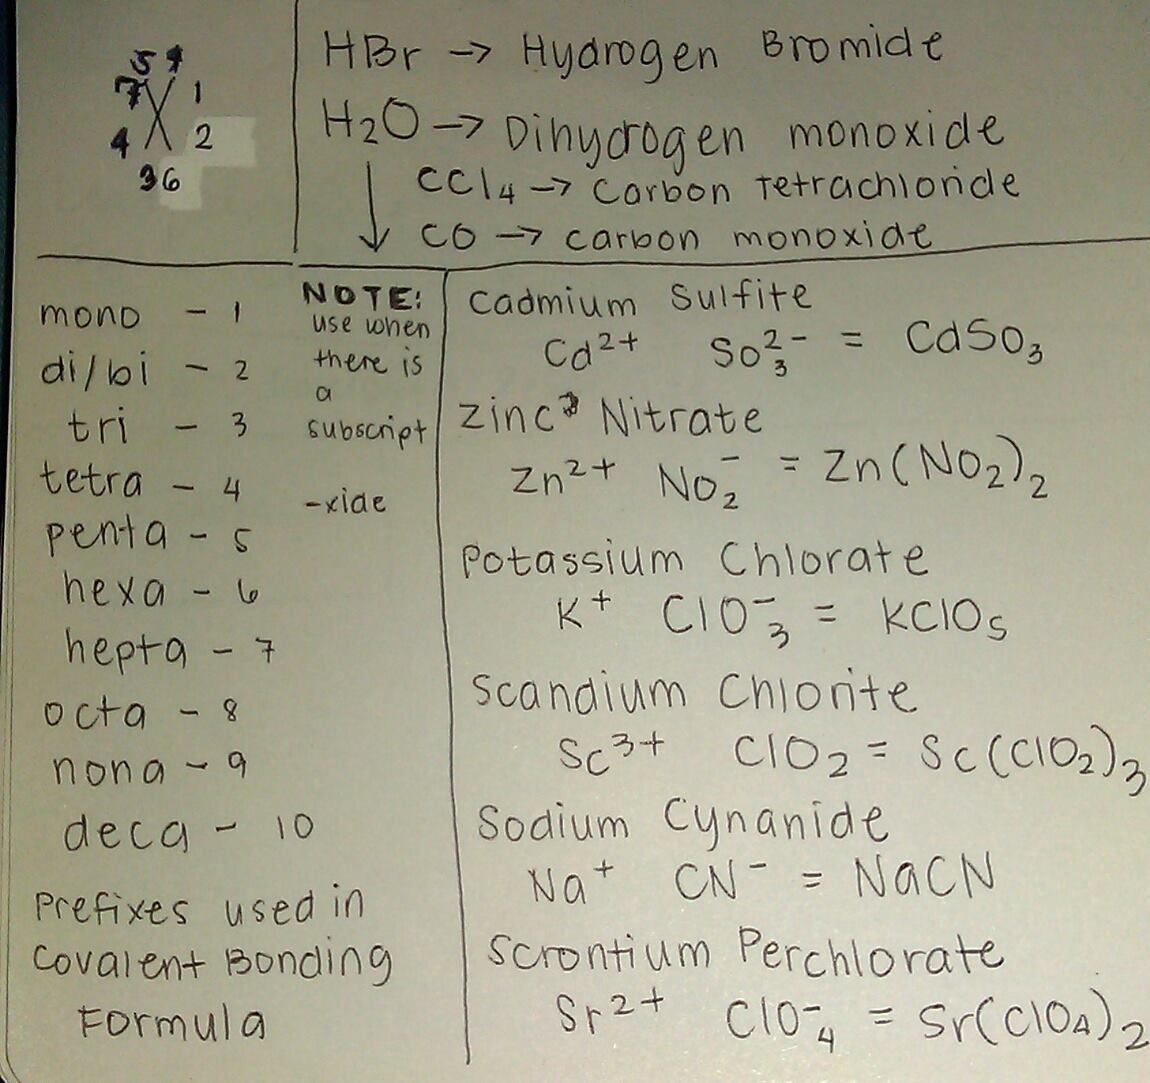 5 7
7 X 1
4 2
3 6
HBr → Hydrogen Bromide
H₂O → Dihydrogen monoxide
CCl₄ → Carbon Tetrachloride
CO → carbon monoxide
mono - 1
di/bi - 2
tri - 3
tetra - 4
penta - 5
hexa - 6
hepta - 7
octa - 8
nona - 9
deca - 10
Prefixes used in
Covalent Bonding
Formula
NOTE:
use when
there is
a
subscript
-xide
Cadmium Sulfite
Cd²⁺ So₃²⁻ = CdSO₃
Zinc Nitrate
Zn²⁺ NO₂⁻ = Zn(NO₂)₂
Potassium Chlorate
K⁺ ClO₃⁻ = KClO₅
Scandium Chlorite
Sc³⁺ ClO₂ = Sc(ClO₂)₃
Sodium Cynanide
Na⁺ CN⁻ = NaCN
Scrontium Perchlorate
Sr²⁺ ClO₄⁻ = Sr(ClO₄)₂